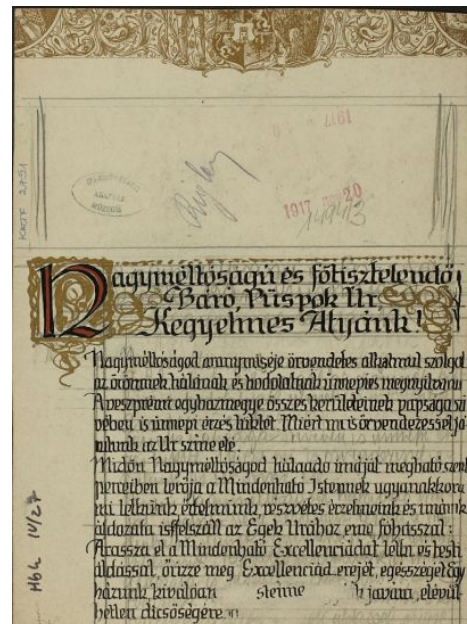 1917
1917 20
KRTF 2751
Nagyméltóságú és főtisztelendő
Báró, Püspök Úr
Kegyelmes Atyánk!
Nagyméltóságod aranymiséje örvendetes alkalmul szolgál
az örömnek hálának és hodolatnak ünnepies
A veszprémi egyházmegye összes kerületeinek papsága
is ünnepi érzés Miért mi is örvendezéssel
az Úr színe elé.
Midőn Nagyméltóságod hálaadó imáját megható
perceiben lerója a Mindenható Istennek ugyanakkor
mi lelkünk részvétes érzelmeink és imánk
áldozata is felszáll az Egek Urához eme fohásszal:
Árassza el a Mindenható Excellenciádat lelki és testi
áldással, őrizze meg Excellenciád erejét, egészségét
házunk kiválóan javára,
dicsőségére
IV/27